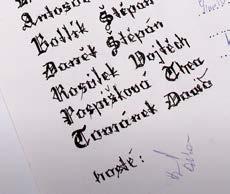 Botlík Štěpán
Daněk Štěpán
Rosůlek Vojtěch
Pospíšilová Thea
Tománek David
hosté: